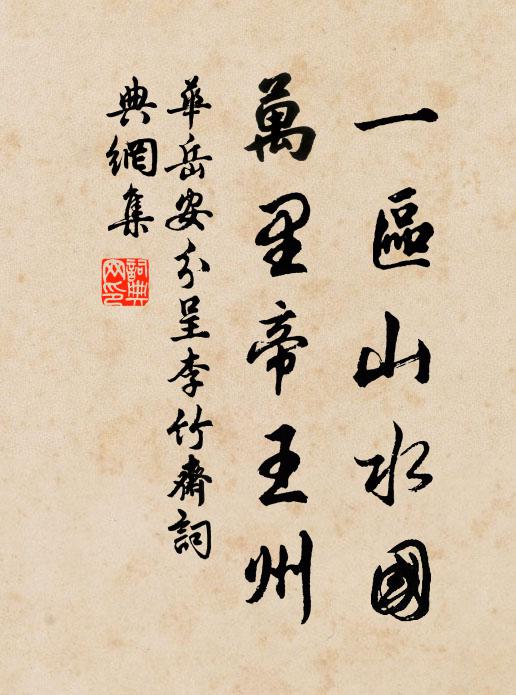 一區山水國
萬里帝王州
華岳安分呈李竹齋詞
典網集
詞典網印